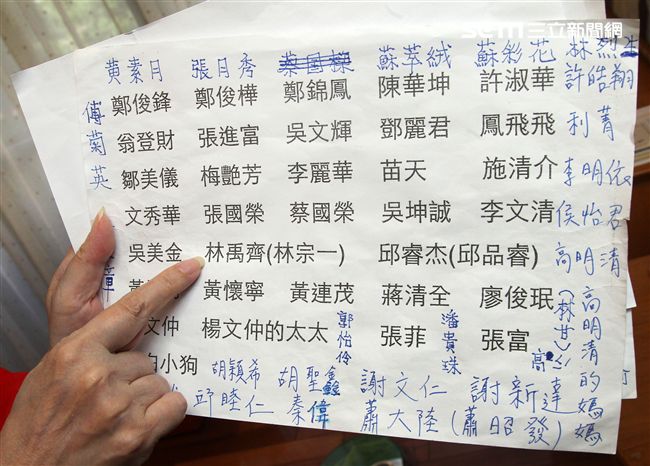 三立新聞網
黄素月 張月秀 蘇萃絨 蘇彩花 林烈生
鄭俊鋒 鄭俊樺 鄭錦鳳 陳華坤 許淑華 許皓翔
翁登財 張進富 吳文輝 鄧麗君 鳳飛飛 利菁
鄒美儀 梅艷芳 李麗華 苗天 施清介 李明依
文秀華 張國榮 蔡國榮 吳坤誠 李文清 侯怡君
吳美金 林禹齊(林宗一) 邱睿杰(邱品睿) 高明清
黃懷寧 黃連茂 蔣清全 廖俊珉
文仲 楊文仲的太太 張菲 張富
小狗
傅菊英
章
郭怡伶
潘貴珠
高明清的媽媽
胡穎希 胡聖鑫 謝文仁 謝新達
邱睦仁 秦偉 蕭大陸(蕭昭發)